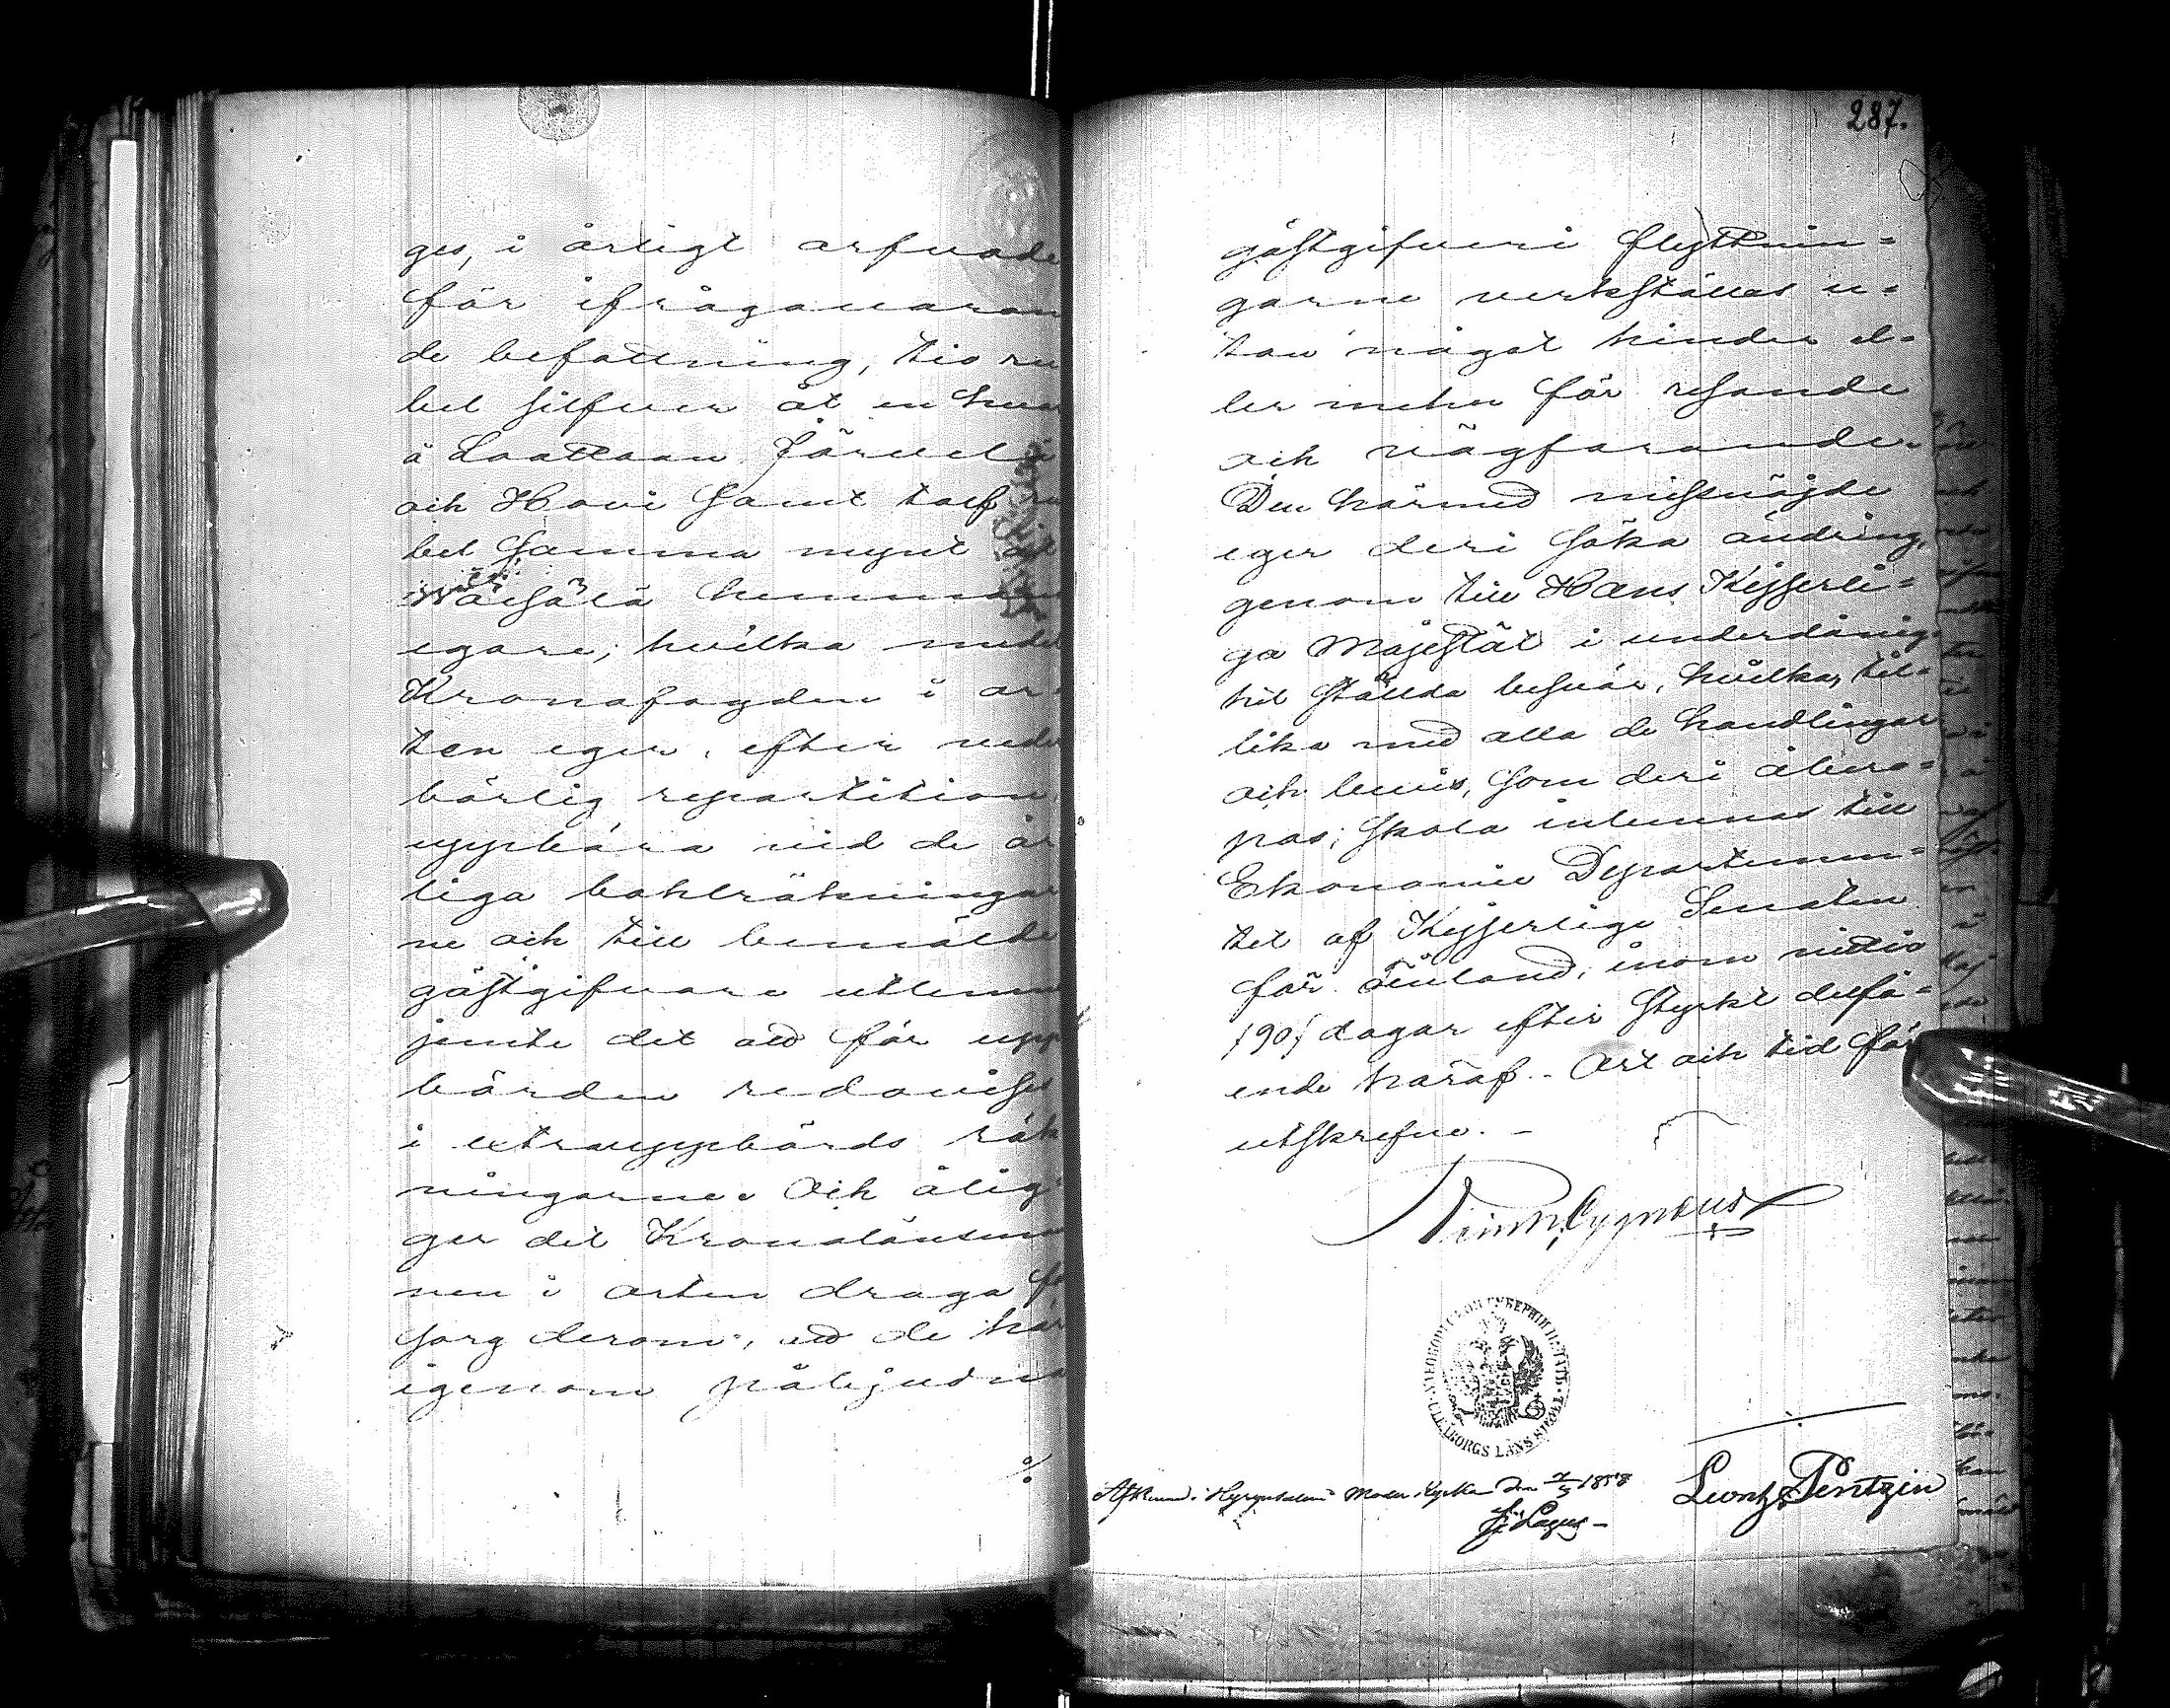 ges, i årligt arfvode
för ifrågavaran
de befattning, tio ru
bel silfver åt en hvar
å Laattaan Järvelä
och Hovi samt tolf ru
bel samma mynt åt
Wäisälä hemmans
egare; hvilka medel
Kronofogden i or-
ten eger, efter veder
börlig repartition,
uppbära vid de år
liga bohlräkningar
ne och till bemälde
gästgifvare utlemna
jemte det ad för upp
börden redovisas
i extrauppbörds räk
ningarne. Och ålig-
ger det Kronolänsman
nen i orten draga för
sorg derom, ad de här
igenom påbjudna
287.
gästgifveri flyttnin=
garne verkställas u=
tan något hinder el=
ler mehn för resande
och vägfarande.
Den härmed missnöjde
eger deri söka ändring,
genom till Hans Kejserli=
ga Majestät i underdånig=
het ställda besvär, hvilka, till=
lika med alla de handlingar
och bevis, som deri åbero=
pas, skola inlemnas till
Ekonomie Departemen=
tet af Kejserliga Senaten
för Finland, inom nittio
/90/ dagar efter styrkt delfå=
ende häraf. - Ort och tid för
utskrefne. -
WIBORGS LÄNS
Afkunnad i Hyrynsalmi Moderkyrka den 1858
Lagus -
Leontz Pentzin